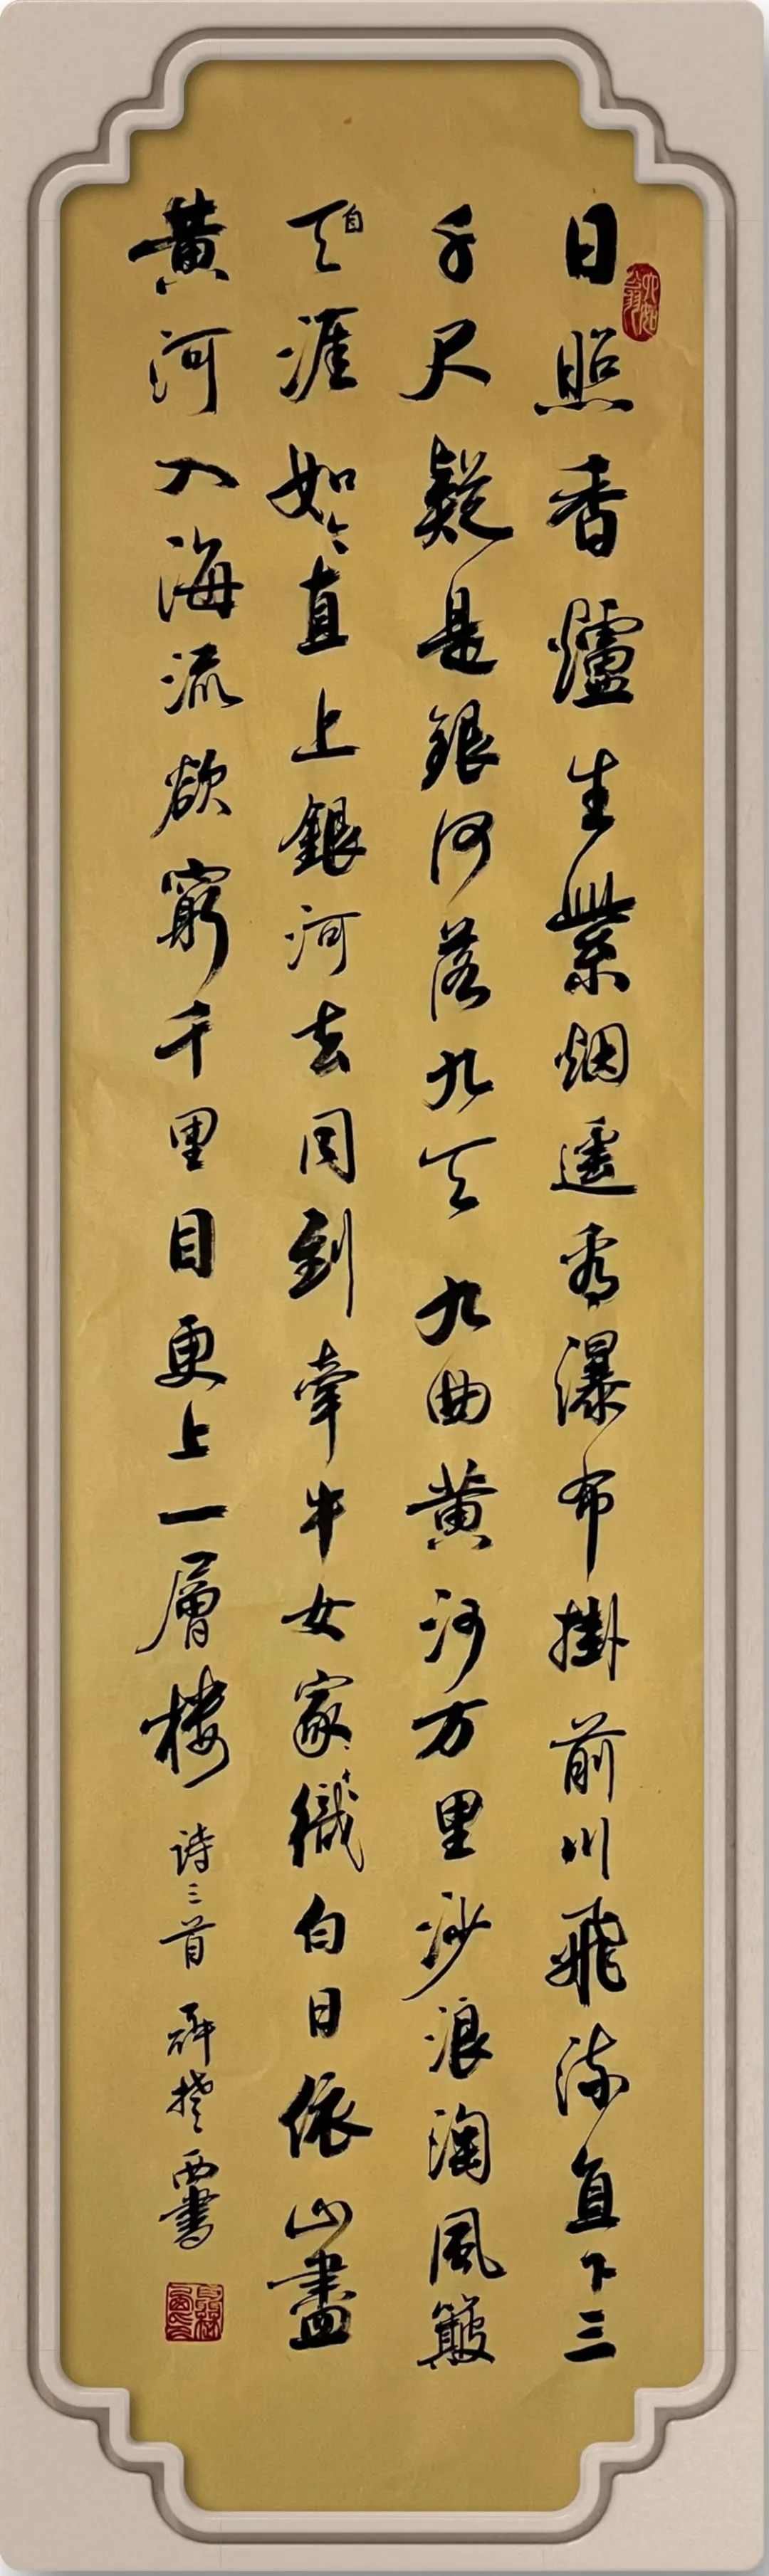 日照香爐生紫烟遥看瀑布掛前川飛流直下三
千尺疑是銀河落九天九曲黄河万里沙浪淘風簸
自天涯如今直上銀河去同到牽牛女家織白日依山盡
黄河入海流欲窮千里目更上一層楼
詩三首
書